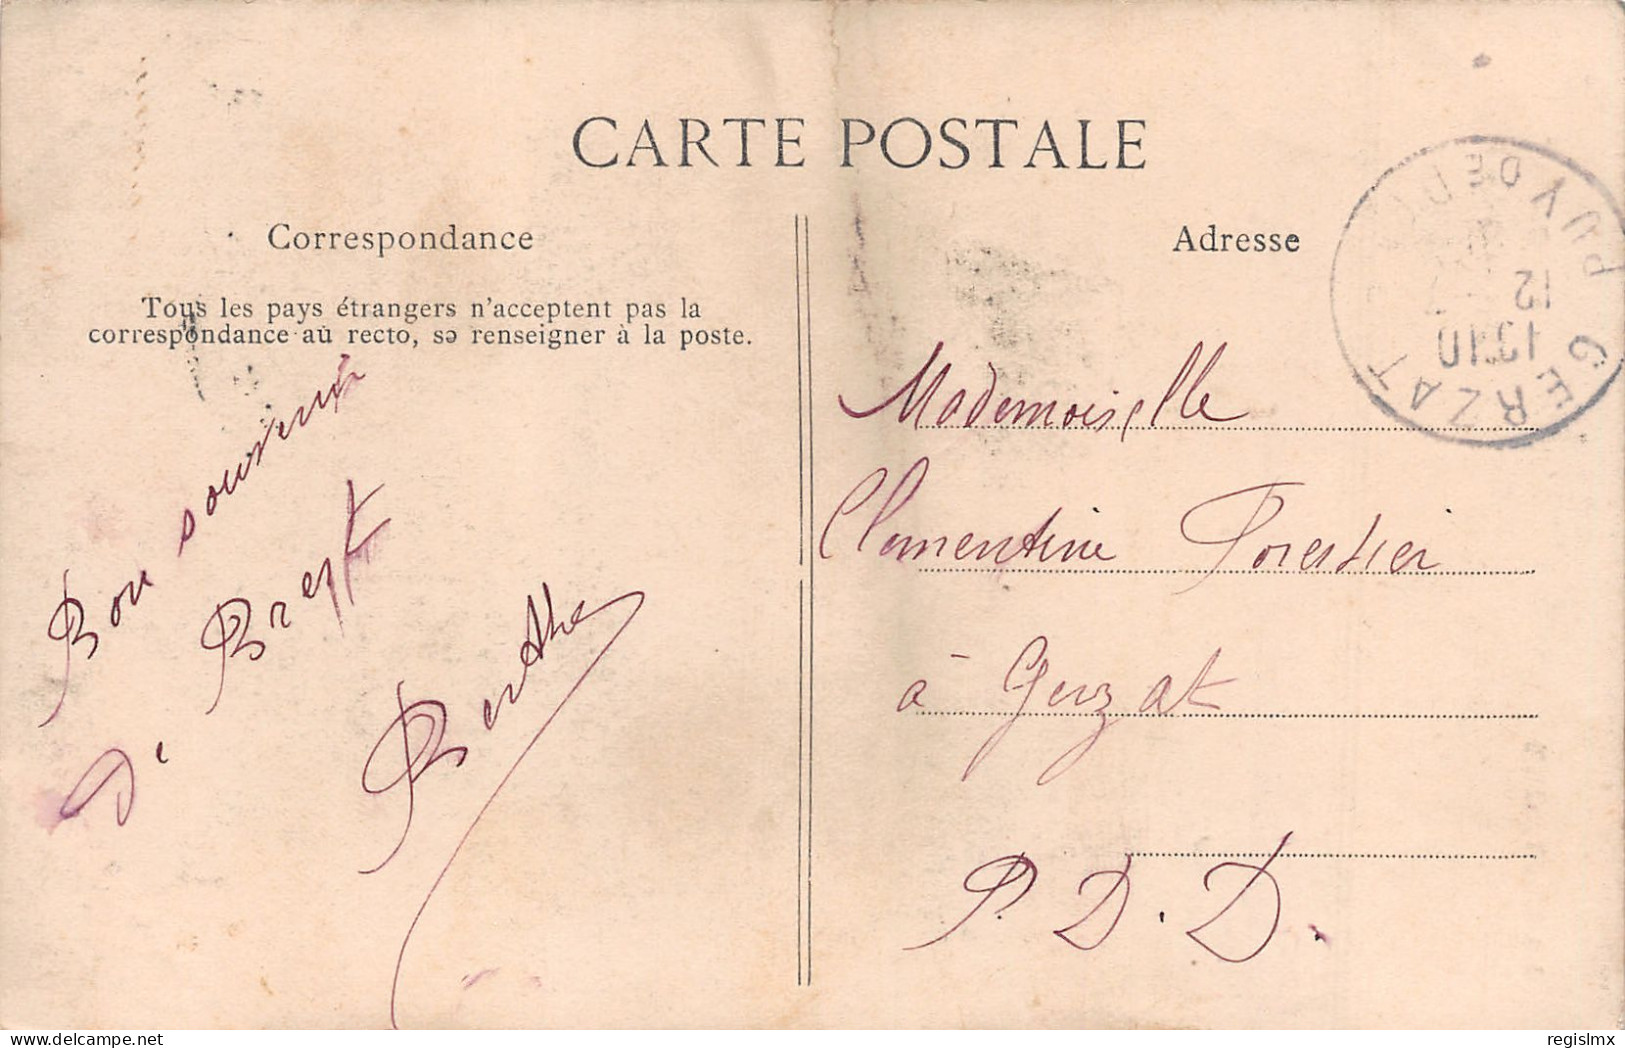 CARTE POSTALE
Correspondance
Tous les pays étrangers n'acceptent pas la
correspondance au recto, se renseigner à la poste.
Bon souvenir
De Brest
Berthe
Adresse
Mademoiselle
Clementine Forestier
à Gerzat
P. D. D.
GERZAT
PUY DE D
12
regislmx